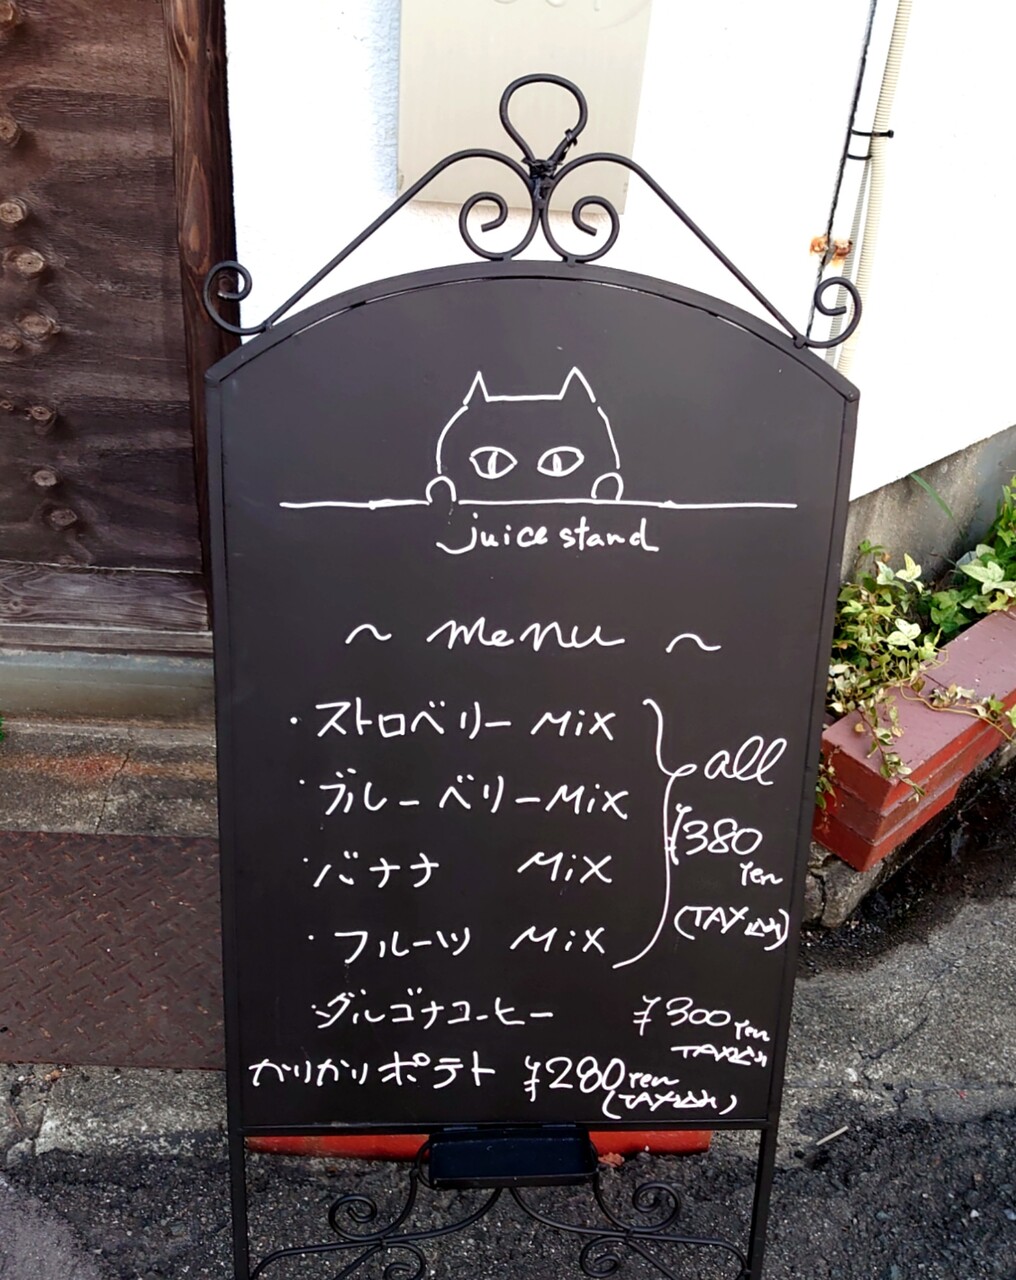 juice stand
~ menu ~
・ストロベリー MiX
・ブルーベリーMiX
・バナナ MiX
・フルーツ MiX
all
¥380
Yen
(TAX込み)
・ダルゴナコーヒー ¥300 Yen
TAX込み
カリカリポテト ¥280 Yen
(TAX込み)